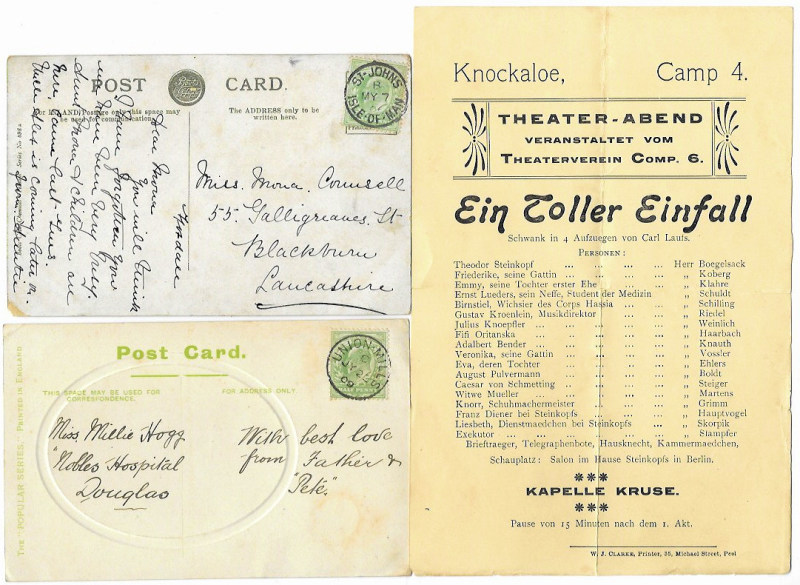 POST CARD.
For INLAND Postage only this space may
be used for communication.
The ADDRESS only to be
written here.
ST-JOHNS
MY 7
ISLE-OF-MAN
Foxdale
Dear Mona
You will think
I have forgotten you
we have been very busy.
Aunt Mona & Children are
here, came last Tues.
Uncle is coming later on
Miss. Mona. Counsell
55. Galligreaves. St
Blackburn
Lancashire
Post Card.
THIS SPACE MAY BE USED FOR
CORRESPONDENCE.
FOR ADDRESS ONLY
THE "POPULAR" SERIES. PRINTED IN ENGLAND
UNION-MILLS
09
Miss. Millie Hogg
"Nobles Hospital
Douglas
With best love
from Father &
"Pete."
Knockaloe, Camp 4.
THEATER-ABEND
VERANSTALTET VOM
THEATERVEREIN COMP. 6.
Ein Toller Einfall
Schwank in 4 Aufzuegen von Carl Laufs.
PERSONEN:
Theodor Steinkopf ... ... ... Herr Boegelsack
Friederike, seine Gattin ... ... ... „ Koberg
Emmy, seine Tochter erster Ehe ... ... „ Klahre
Ernst Lueders, sein Neffe, Student der Medizin „ Schuldt
Birnstiel, Wichsier des Corps Hassia ... ... „ Schilling
Gustav Kroenlein, Musikdirektor ... ... „ Riedel
Julius Knoepfler ... ... ... ... „ Weinlich
Fifi Oritanska ... ... ... ... „ Haarbach
Adalbert Bender ... ... ... ... „ Knauth
Veronika, seine Gattin ... ... ... „ Vossler
Eva, deren Tochter ... ... ... ... „ Ehlers
August Pulvermann ... ... ... ... „ Boldt
Caesar von Schmetting ... ... ... „ Steiger
Witwe Mueller ... ... ... ... „ Martens
Knorr, Schuhmachermeister ... ... ... „ Grimm
Franz Diener bei Steinkopfs ... ... ... „ Hauptvogel
Liesbeth, Dienstmaedchen bei Steinkopfs ... „ Skorpik
Exekutor ... ... ... ... „ Stampfer
Brieftraeger, Telegraphenbote, Hausknecht, Kammermaedchen,
Schauplatz: Salon im Hause Steinkopfs in Berlin.
KAPELLE KRUSE.
Pause von 15 Minuten nach dem 1. Akt.
W. J. CLARKE, Printer, 35, Michael Street, Peel